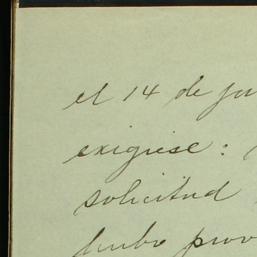 el 14 de ju
exigiese:
solicitud
timbre prov